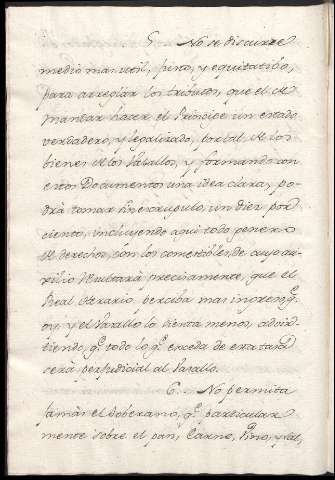 5. No se discurre
medio mas util, justo, y equitatibo,
para arreglar los tributos, que el
mandar hacer el Principe un estado
verdadero, y legalizado, total de los
bienes de los Vasallos, y formando con
estos Documentos una idea clara, po-
drà tomar sin escrupulo, un diez por
ciento, incluyendo aqui todo genero
de derechos, con los comestibles, de cuyo au-
xilio resultarà precisamente, que el
Real Herario perciba mas ingres
os, y el Vasallo lo sienta menos, advir-
tiendo, qe. todo lo qe. exceda de esta tasa
serà perjudicial al Vasallo.
6. No permita
jamàs el Soberano, qe. particular
mente sobre el pan, Carne, Vino, y sal,